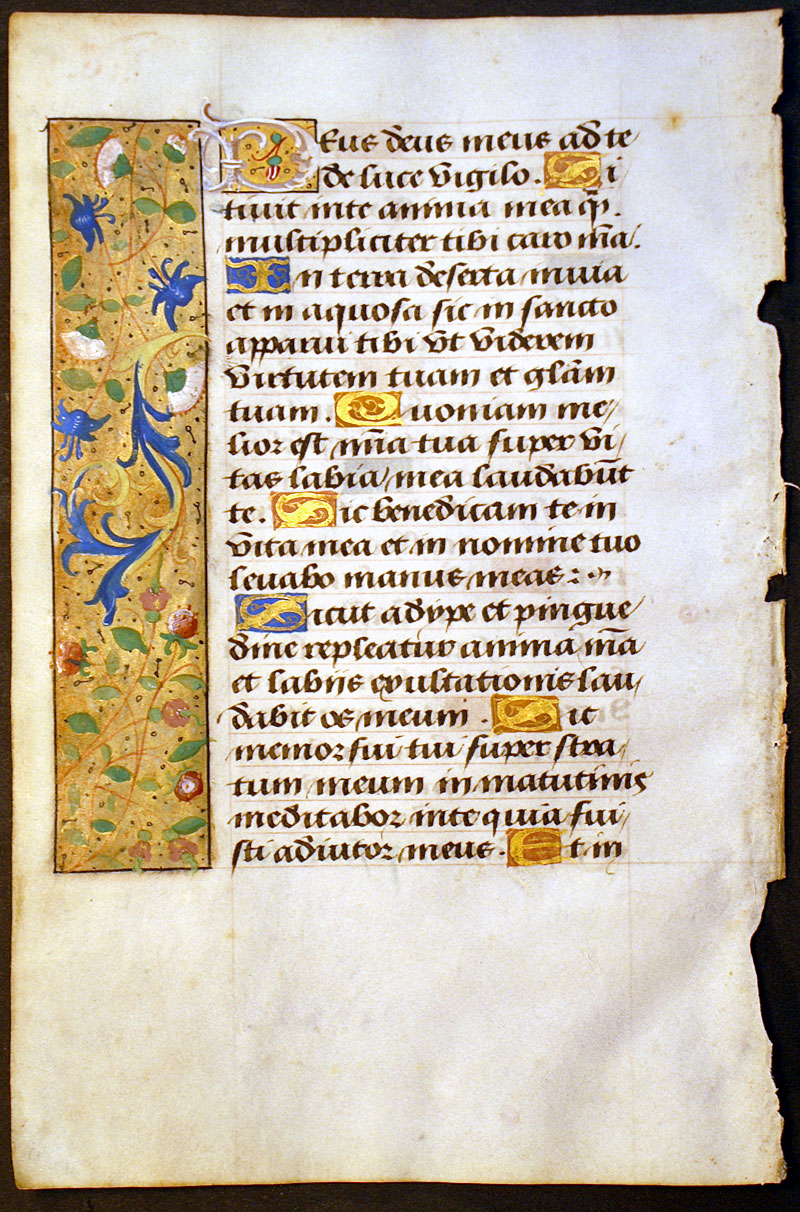 Deus deus meus ad te
de luce vigilo. Si
tiuit in te anima mea qͣ.
multipliciter tibi caro m̄a.
In terra deserta inuia
et in aquosa sic in sancto
apparui tibi vt viderem
virtutem tuam et glām
tuam. Quoniam me/
lior est m̄ia tua super vi/
tas labia mea laudabūt
te. Sic benedicam te in
vita mea et in nomine tuo
leuabo manus meas:
Sicut adype et pingue
dine repleatur anima m̄a
et labijs exultationis lau/
dabit os meum. Sic
memor fui tui super stra/
tum meum in matutinis
meditabor in te quia fui/
sti adiutor meus. Et in